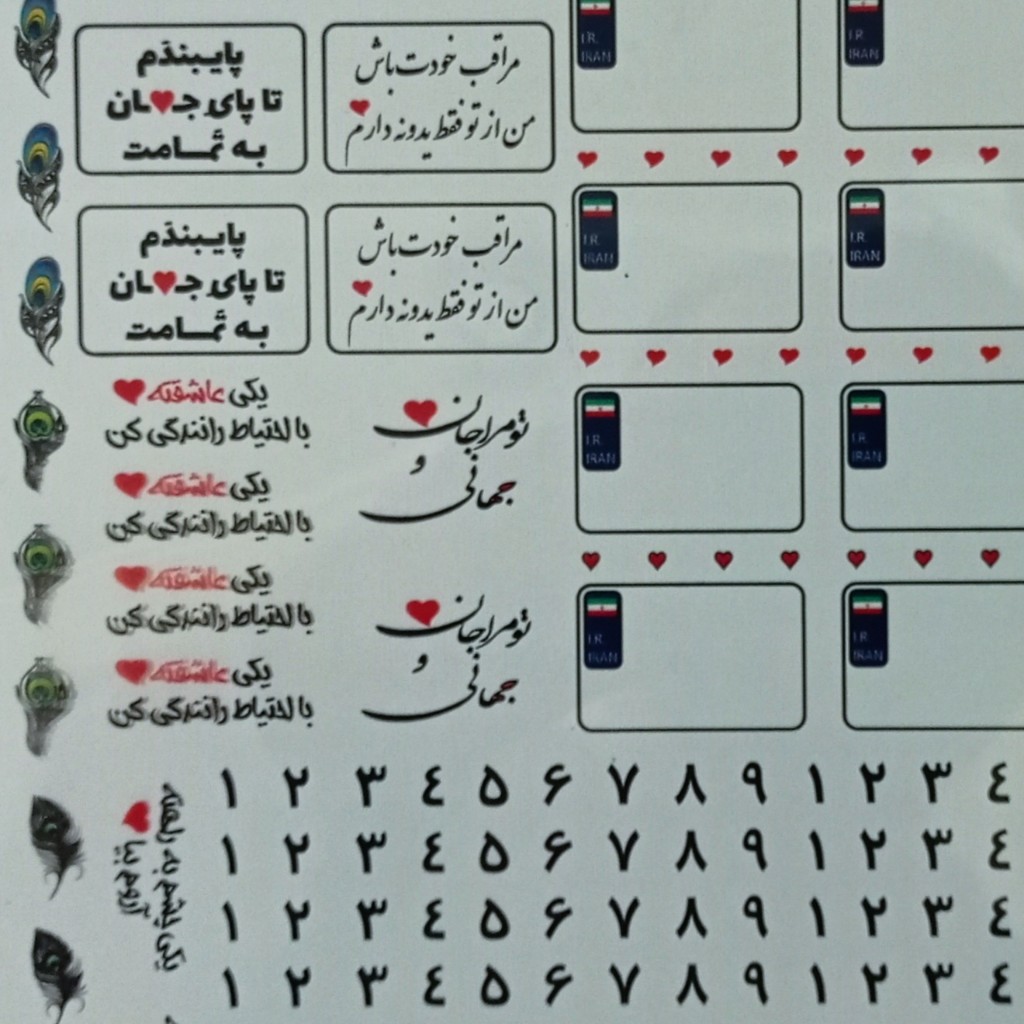 پایبندَم
تا پای جان
به تَمامت
مراقب خودت باش
من از تو فقط یدونه دارم
I.R.
IRAN
I.R.
IRAN
پایبندَم
تا پای جان
به تَمامت
مراقب خودت باش
من از تو فقط یدونه دارم
I.R.
IRAN
I.R.
IRAN
یکی عاشقته
با احتیاط رانندگی کن
یکی عاشقته
با احتیاط رانندگی کن
یکی عاشقته
با احتیاط رانندگی کن
یکی عاشقته
با احتیاط رانندگی کن
تو مرا جان
و
جهانی
تو مرا جان
و
جهانی
I.R.
IRAN
I.R.
IRAN
I.R.
IRAN
I.R.
IRAN
یکی چشم به راهته
آروم بیا
۱ ۲ ۳ ٤ ۵ ۶ ۷ ۸ ۹ ۱ ۲ ۳ ٤
۱ ۲ ۳ ٤ ۵ ۶ ۷ ۸ ۹ ۱ ۲ ۳ ٤
۱ ۲ ۳ ٤ ۵ ۶ ۷ ۸ ۹ ۱ ۲ ۳ ٤
۱ ۲ ۳ ٤ ۵ ۶ ۷ ۸ ۹ ۱ ۲ ۳ ٤